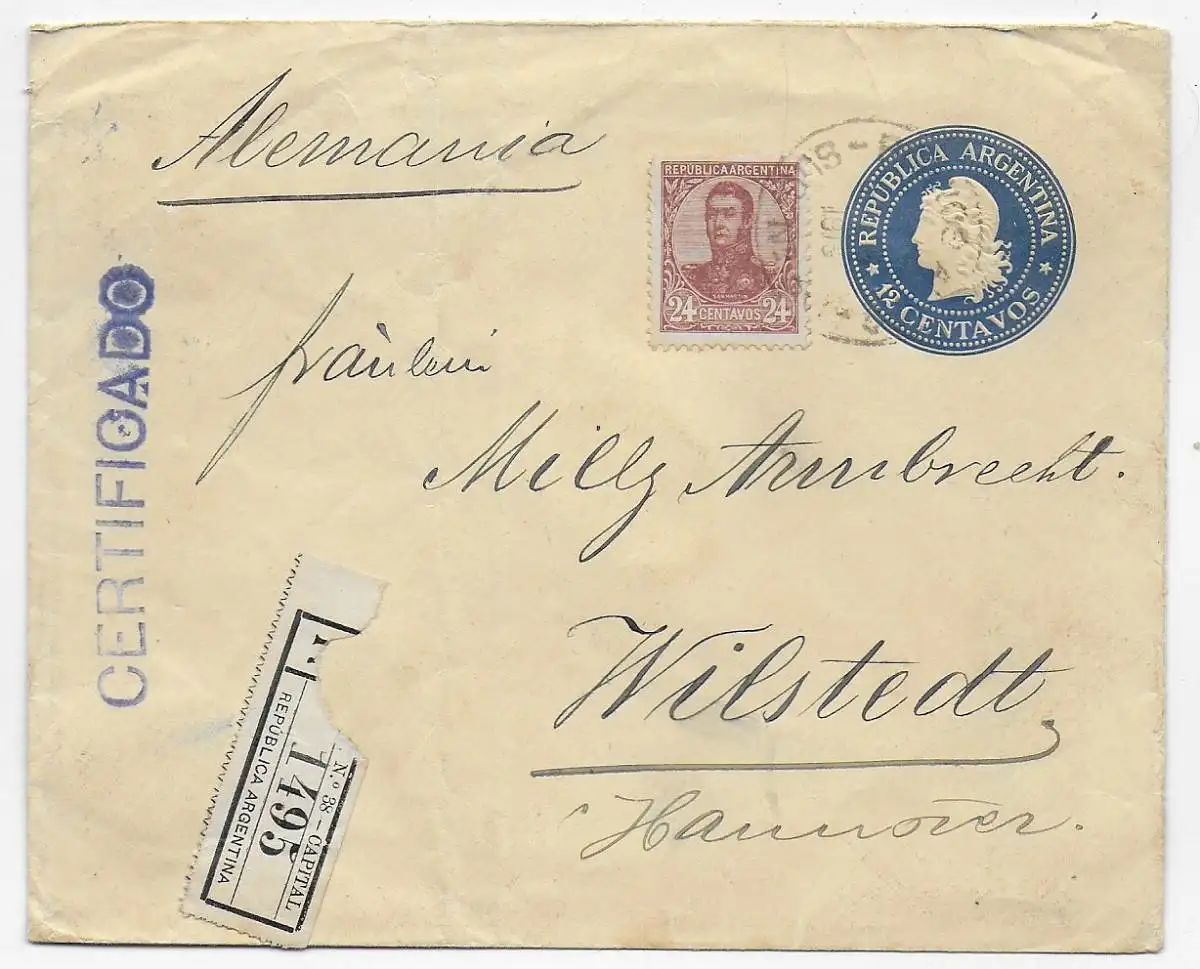 Alemania
REPUBLICA ARGENTINA
SAN MARTIN
24 CENTAVOS 24
REPUBLICA ARGENTINA
12 CENTAVOS
CERTIFICADO
Fräulein
Milly Armbrecht.
Wilstedt
Hannover.
N.º 38 - CAPITAL
1495
REPÚBLICA ARGENTINA